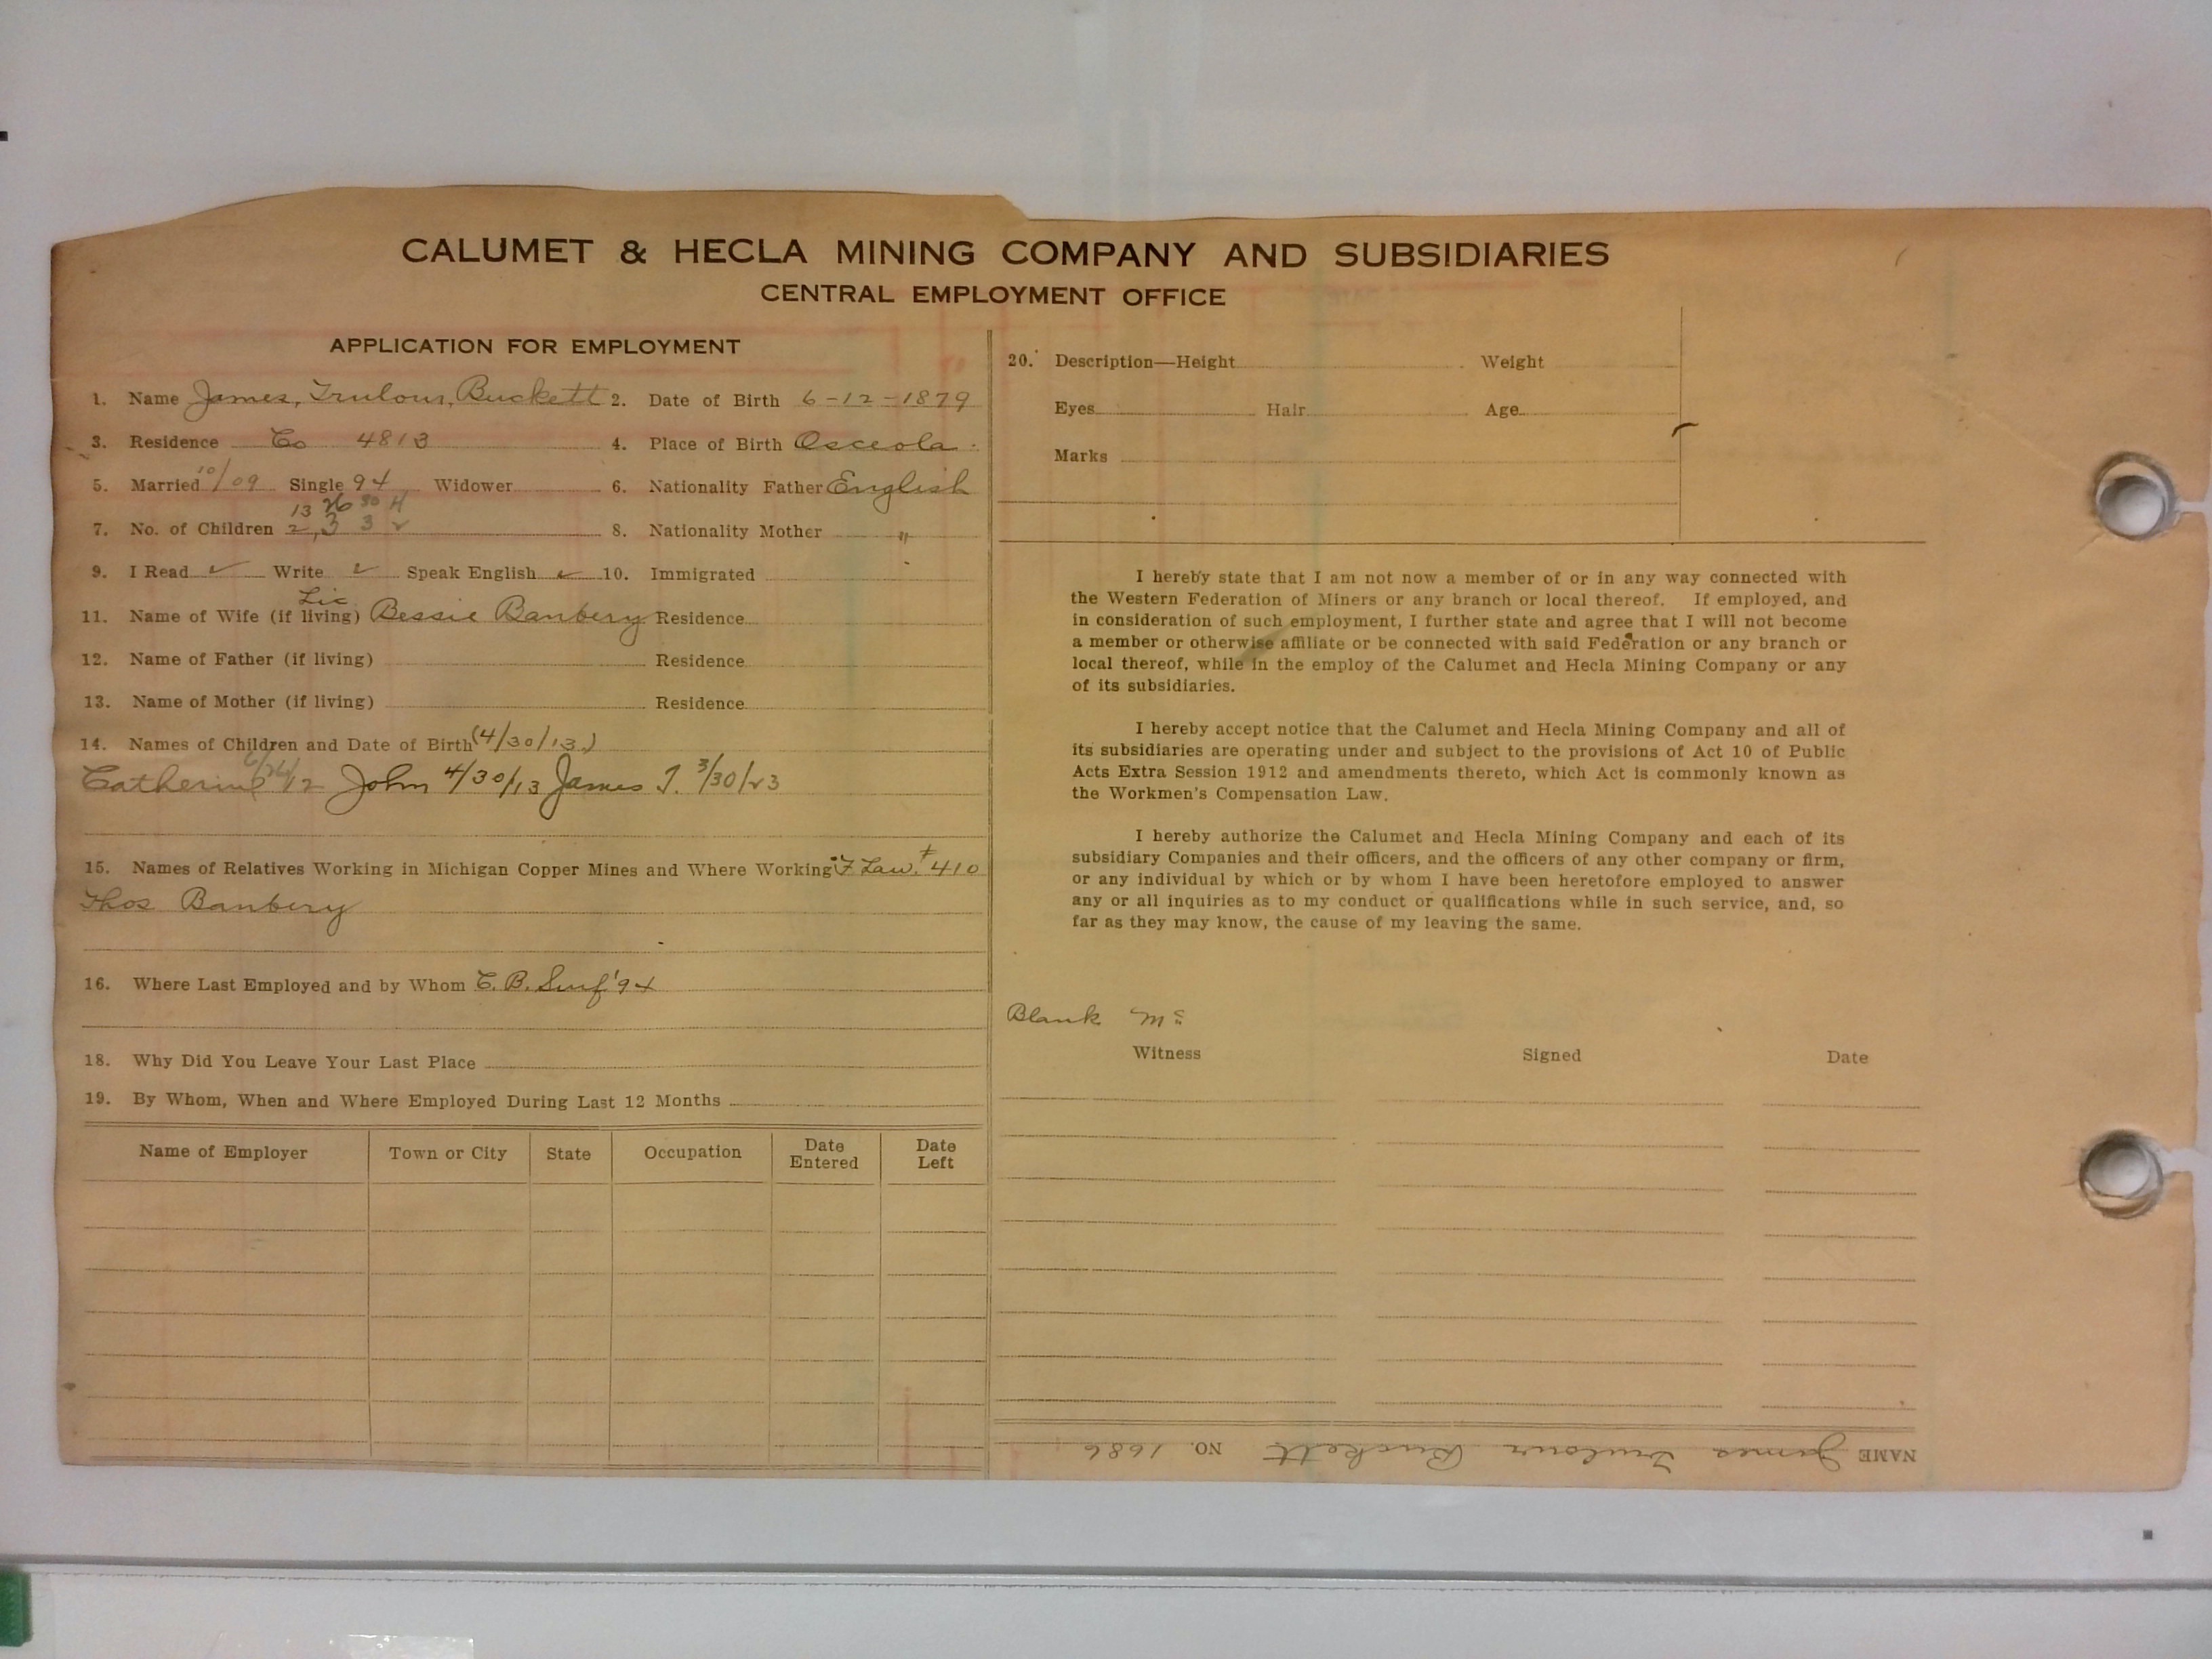 CALUMET & HECLA MINING COMPANY AND SUBSIDIARIES
CENTRAL EMPLOYMENT OFFICE
APPLICATION FOR EMPLOYMENT
1. Name James, Trulour, Buckett 2. Date of Birth 6-12-1879
3. Residence Co 4813 4. Place of Birth Osceola
5. Married 10/09 Single 94 Widower 6. Nationality Father English
13 26 30 H
7. No. of Children 2, 3 3 2 8. Nationality Mother "
9. I Read ✓ Write ✓ Speak English ✓ 10. Immigrated
Liz
11. Name of Wife (if living) Bessie Banbery Residence
12. Name of Father (if living) Residence
13. Name of Mother (if living) Residence
14. Names of Children and Date of Birth (4/30/13)
Catherine 6/26/12 John 4/30/13 James T. 3/30/23
15. Names of Relatives Working in Michigan Copper Mines and Where Working F Law. #410
Thos Banbery
16. Where Last Employed and by Whom C. B. Surf '94
18. Why Did You Leave Your Last Place
19. By Whom, When and Where Employed During Last 12 Months
Name of Employer Town or City State Occupation Date Entered Date Left
20. Description—Height Weight
Eyes Hair Age
Marks
I hereby state that I am not now a member of or in any way connected with
the Western Federation of Miners or any branch or local thereof. If employed, and
in consideration of such employment, I further state and agree that I will not become
a member or otherwise affiliate or be connected with said Federation or any branch or
local thereof, while in the employ of the Calumet and Hecla Mining Company or any
of its subsidiaries.
I hereby accept notice that the Calumet and Hecla Mining Company and all of
its subsidiaries are operating under and subject to the provisions of Act 10 of Public
Acts Extra Session 1912 and amendments thereto, which Act is commonly known as
the Workmen's Compensation Law.
I hereby authorize the Calumet and Hecla Mining Company and each of its
subsidiary Companies and their officers, and the officers of any other company or firm,
or any individual by which or by whom I have been heretofore employed to answer
any or all inquiries as to my conduct or qualifications while in such service, and, so
far as they may know, the cause of my leaving the same.
Blank
Witness Signed Date
NAME James Trulour Buckett NO. 1686